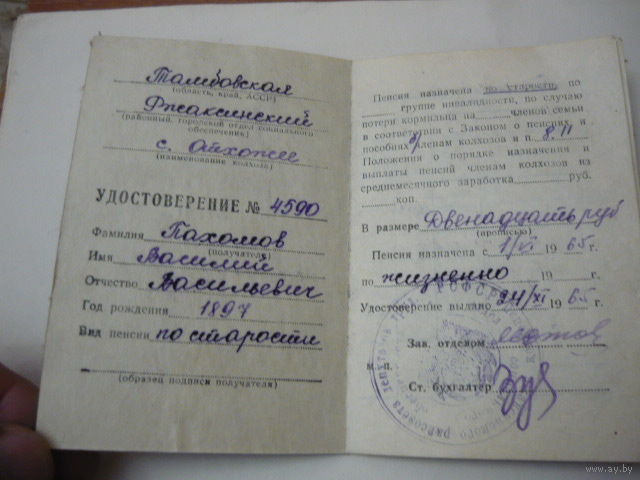 Тамбовская
(область, край, АССР)
Ржаксинский
(районный, городской отдел социального
обеспечения)
с. Отхожее
(наименование колхоза)
УДОСТОВЕРЕНИЕ № 4590
Фамилия Пахомов
(получателя)
Имя Василий
Отчество Васильевич
Год рождения 1897
Вид пенсии по старости
(образец подписи получателя)
Пенсия назначена по старости, по
группе инвалидности, по случаю
потери кормильца на членов семьи
в соответствии с Законом о пенсиях и
пособиях членам колхозов и п. 8. II
Положения о порядке назначения и
выплаты пенсий членам колхозов из
среднемесячного заработка руб.
коп.
В размере Двенадцать руб
(прописью)
Пенсия назначена с 1/XI 1965 г.
по жизненно 19 г.
Удостоверение выдано 24/XI 1965 г.
Зав. отделом
м.п.
Ст. бухгалтер
www.ay.by